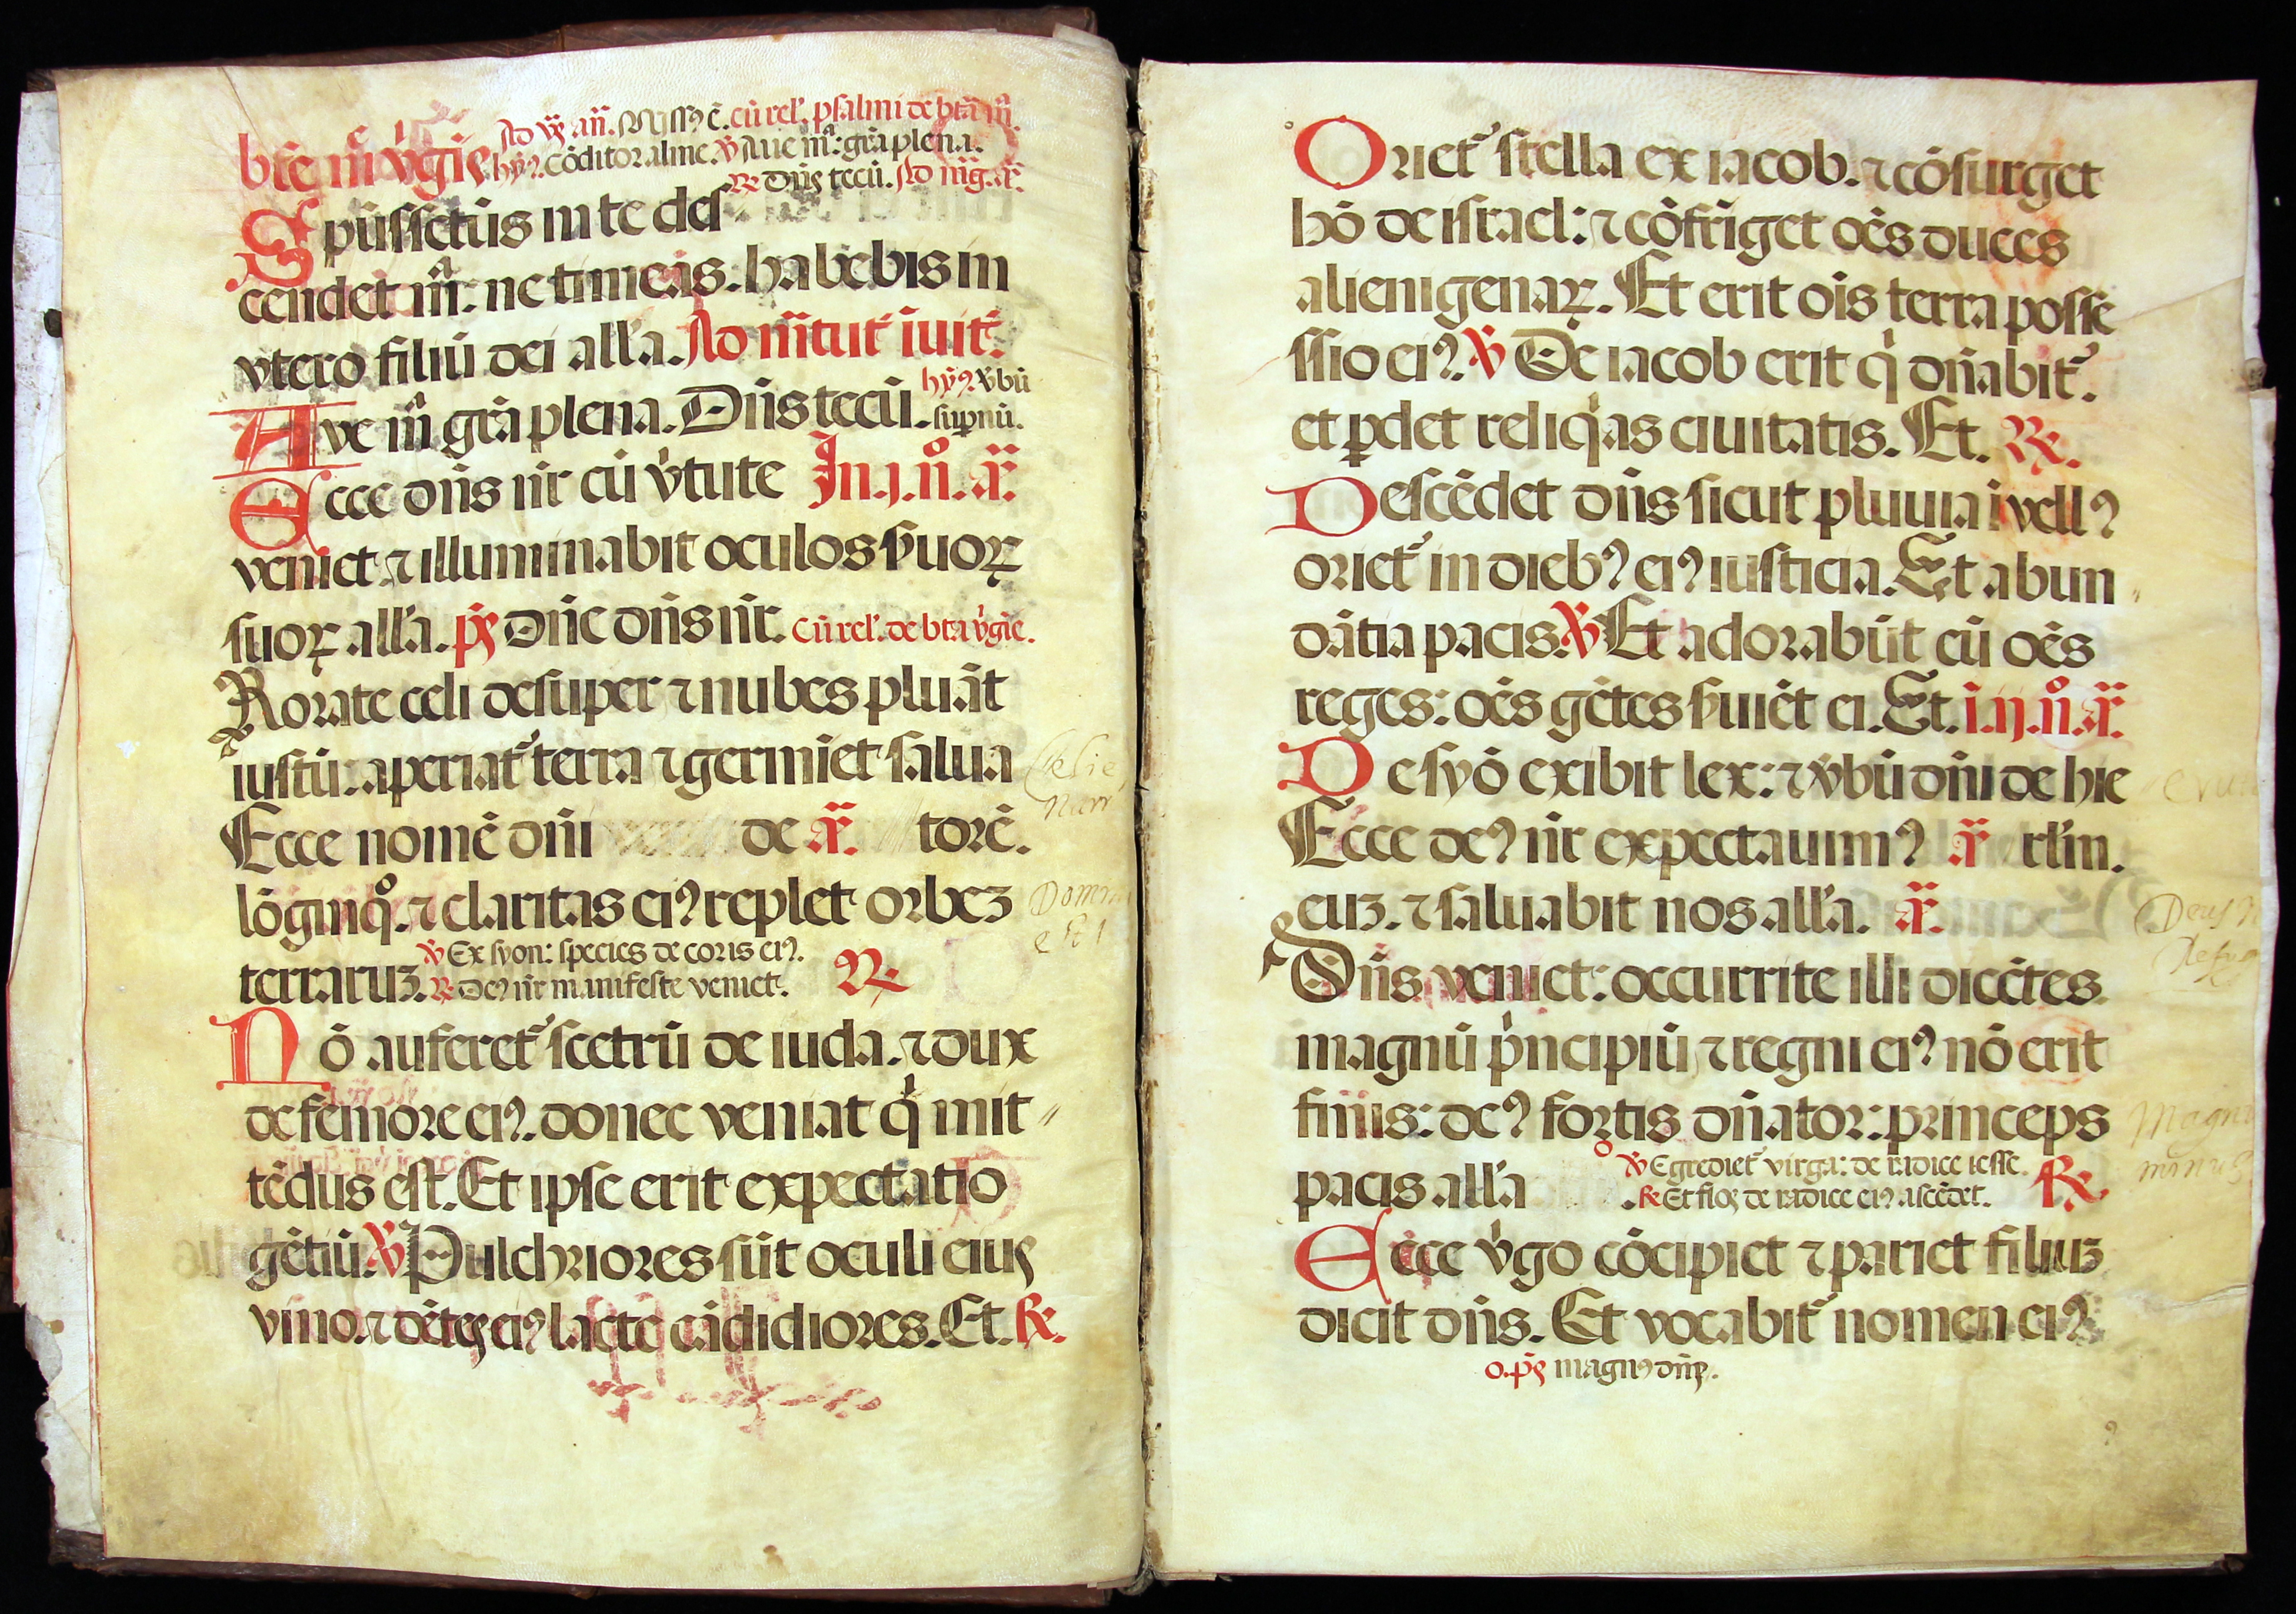 Ad vƷ añ. Missꝰ ē. cū rel'. psalmi de btā m̄.
bt̄e m̄ v̓gīs. hȳꝰ. Cōditor alme. ℣ Aue m̄a: grā plena.
℟ Dn̄s tecū. Ad m̄g. añ.
Spūssctūs in te des
cendet m̄: ne timeas. habebis in
vtero filiū dei all'a. Ad m̄tut̄ īuit̄.
hȳꝰ v̓bū
Ave m̄ grā plena. Dn̄s tecū. sup̄nū.
Ecce dn̄s nr̄ cū v̓tute In. j. n̊. añ.
veniet ⁊ illuminabit oculos ẜuoꝝ
suoꝝ all'a. p̄s Dn̄e dn̄s nr̄. Cū rel'. de bt̄a v̓gīe.
Rorate celi desuper ⁊ nubes pluāt
iustū: aperiat᷑ terra ⁊ germīet salua
Ecce nomē dn̄i de añ. torē.
lōginq̊. ⁊ claritas eiꝰ replet orbeꝫ
℣ Ex syon: species decoris eiꝰ.
terraruꝫ. ℟ Deꝰ nr̄ manifeste veniet. ℟
Nō auferet᷑ sceptrū de iuda. ⁊ dux
de femore eiꝰ. donec veniat q̓ mit
tēdus est. Et ipse erit expectatio
gētiū. ℣ Pulchriores sūt oculi eius
vino. ⁊ dētes eiꝰ lacte cādidiores. Et. ℟.
Oriet᷑ stella ex iacob. ⁊ cōsurget
hō de israel: ⁊ cōfrīget oēs duces
alienigenaꝝ. Et erit oīs terra posse
ssio eiꝰ. ℣ De iacob erit q̓ dn̄abit᷑.
et ꝑdet reliq̓as ciuitatis. Et. ℟.
Descēdet dn̄s sicut pluuia ī vellꝰ
oriet᷑ in diebꝰ eiꝰ iusticia. Et abun
dātia pacis. ℣ Et adorabūt eū oēs
reges: oēs gētes ẜuiēt ei. Et. ī. ij. n̊. añ.
De syō exibit lex: ⁊ v̓bū dn̄i de hie
Ecce deꝰ nr̄ expectauimꝰ añ rl'm.
euꝫ. ⁊ saluabit nos all'a. añ.
Dn̄s veniet: occurrite illi dicētes
magnū p̓ncipiū ⁊ regni eiꝰ nō erit
finis: deꝰ fortis dn̄ator: princeps
℣ Egrediet᷑ virga: de radice iesse.
pacis all'a ℟ Et flos de radice eiꝰ ascēdet. ℟.
Ecce v̓go cōcipiet ⁊ pariet filiuꝫ
dicit dn̄s. Et vocabit᷑ nomen eiꝰ
o. p̄s magnꝰ dn̄s.